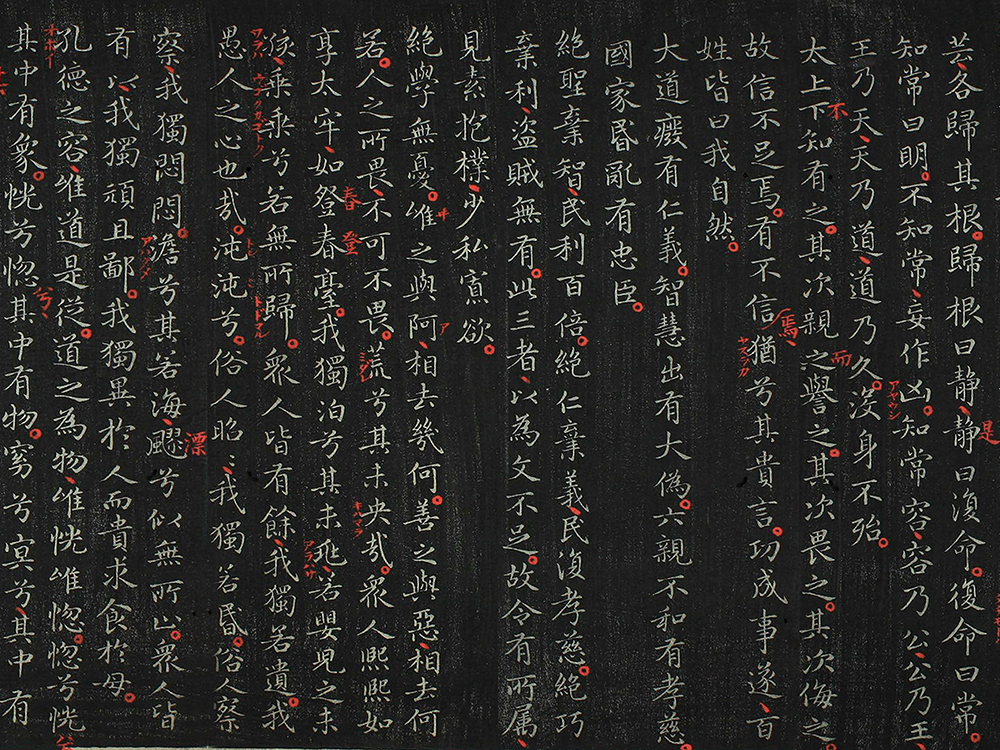 芸、各歸其根。歸根曰静、静曰復命。復命曰常。
知常曰明。不知常、妄作凶。知常容、容乃公、公乃王、
王乃天、天乃道、道乃久。没身不殆。
太上下知有之。其次親之譽之。其次畏之。其次侮之。
故信不足焉。有不信。猶兮其貴言。功成事遂、百
姓皆曰我自然。
大道癈有仁義。智慧出有大偽。六親不和有孝慈。
國家昏亂有忠臣。
絶聖棄智、民利百倍。絶仁棄義、民復孝慈。絶巧
棄利、盗賊無有。此三者、以為文不足。故令有所属、
見素抱樸、少私寡欲。
絶學無憂。唯之與阿、相去幾何。善之與惡、相去何
若。人之所畏、不可不畏。荒兮其未央哉。衆人熙熙如
享太牢、如登春臺。我獨泊兮其未兆、若嬰兒之未
孩、乗乗兮若無所歸。衆人皆有餘、我獨若遺。我
愚人之心也哉。沌沌兮。俗人昭〻、我獨若昏。俗人察
察、我獨悶悶。澹兮其若海、飂兮似無所止。衆人皆
有以、我獨頑且鄙。我獨異於人而貴求食於母。
孔德之容、唯道是従。道之為物、唯恍唯惚。惚兮恍
其中有象。恍兮惚其中有物。窈兮冥兮、其中有
是
不
而
焉
春
登
漂
兮
アヤウシ
ヤスラカ
ア
ミダレ
キハマラ
アラハサ
オホイ